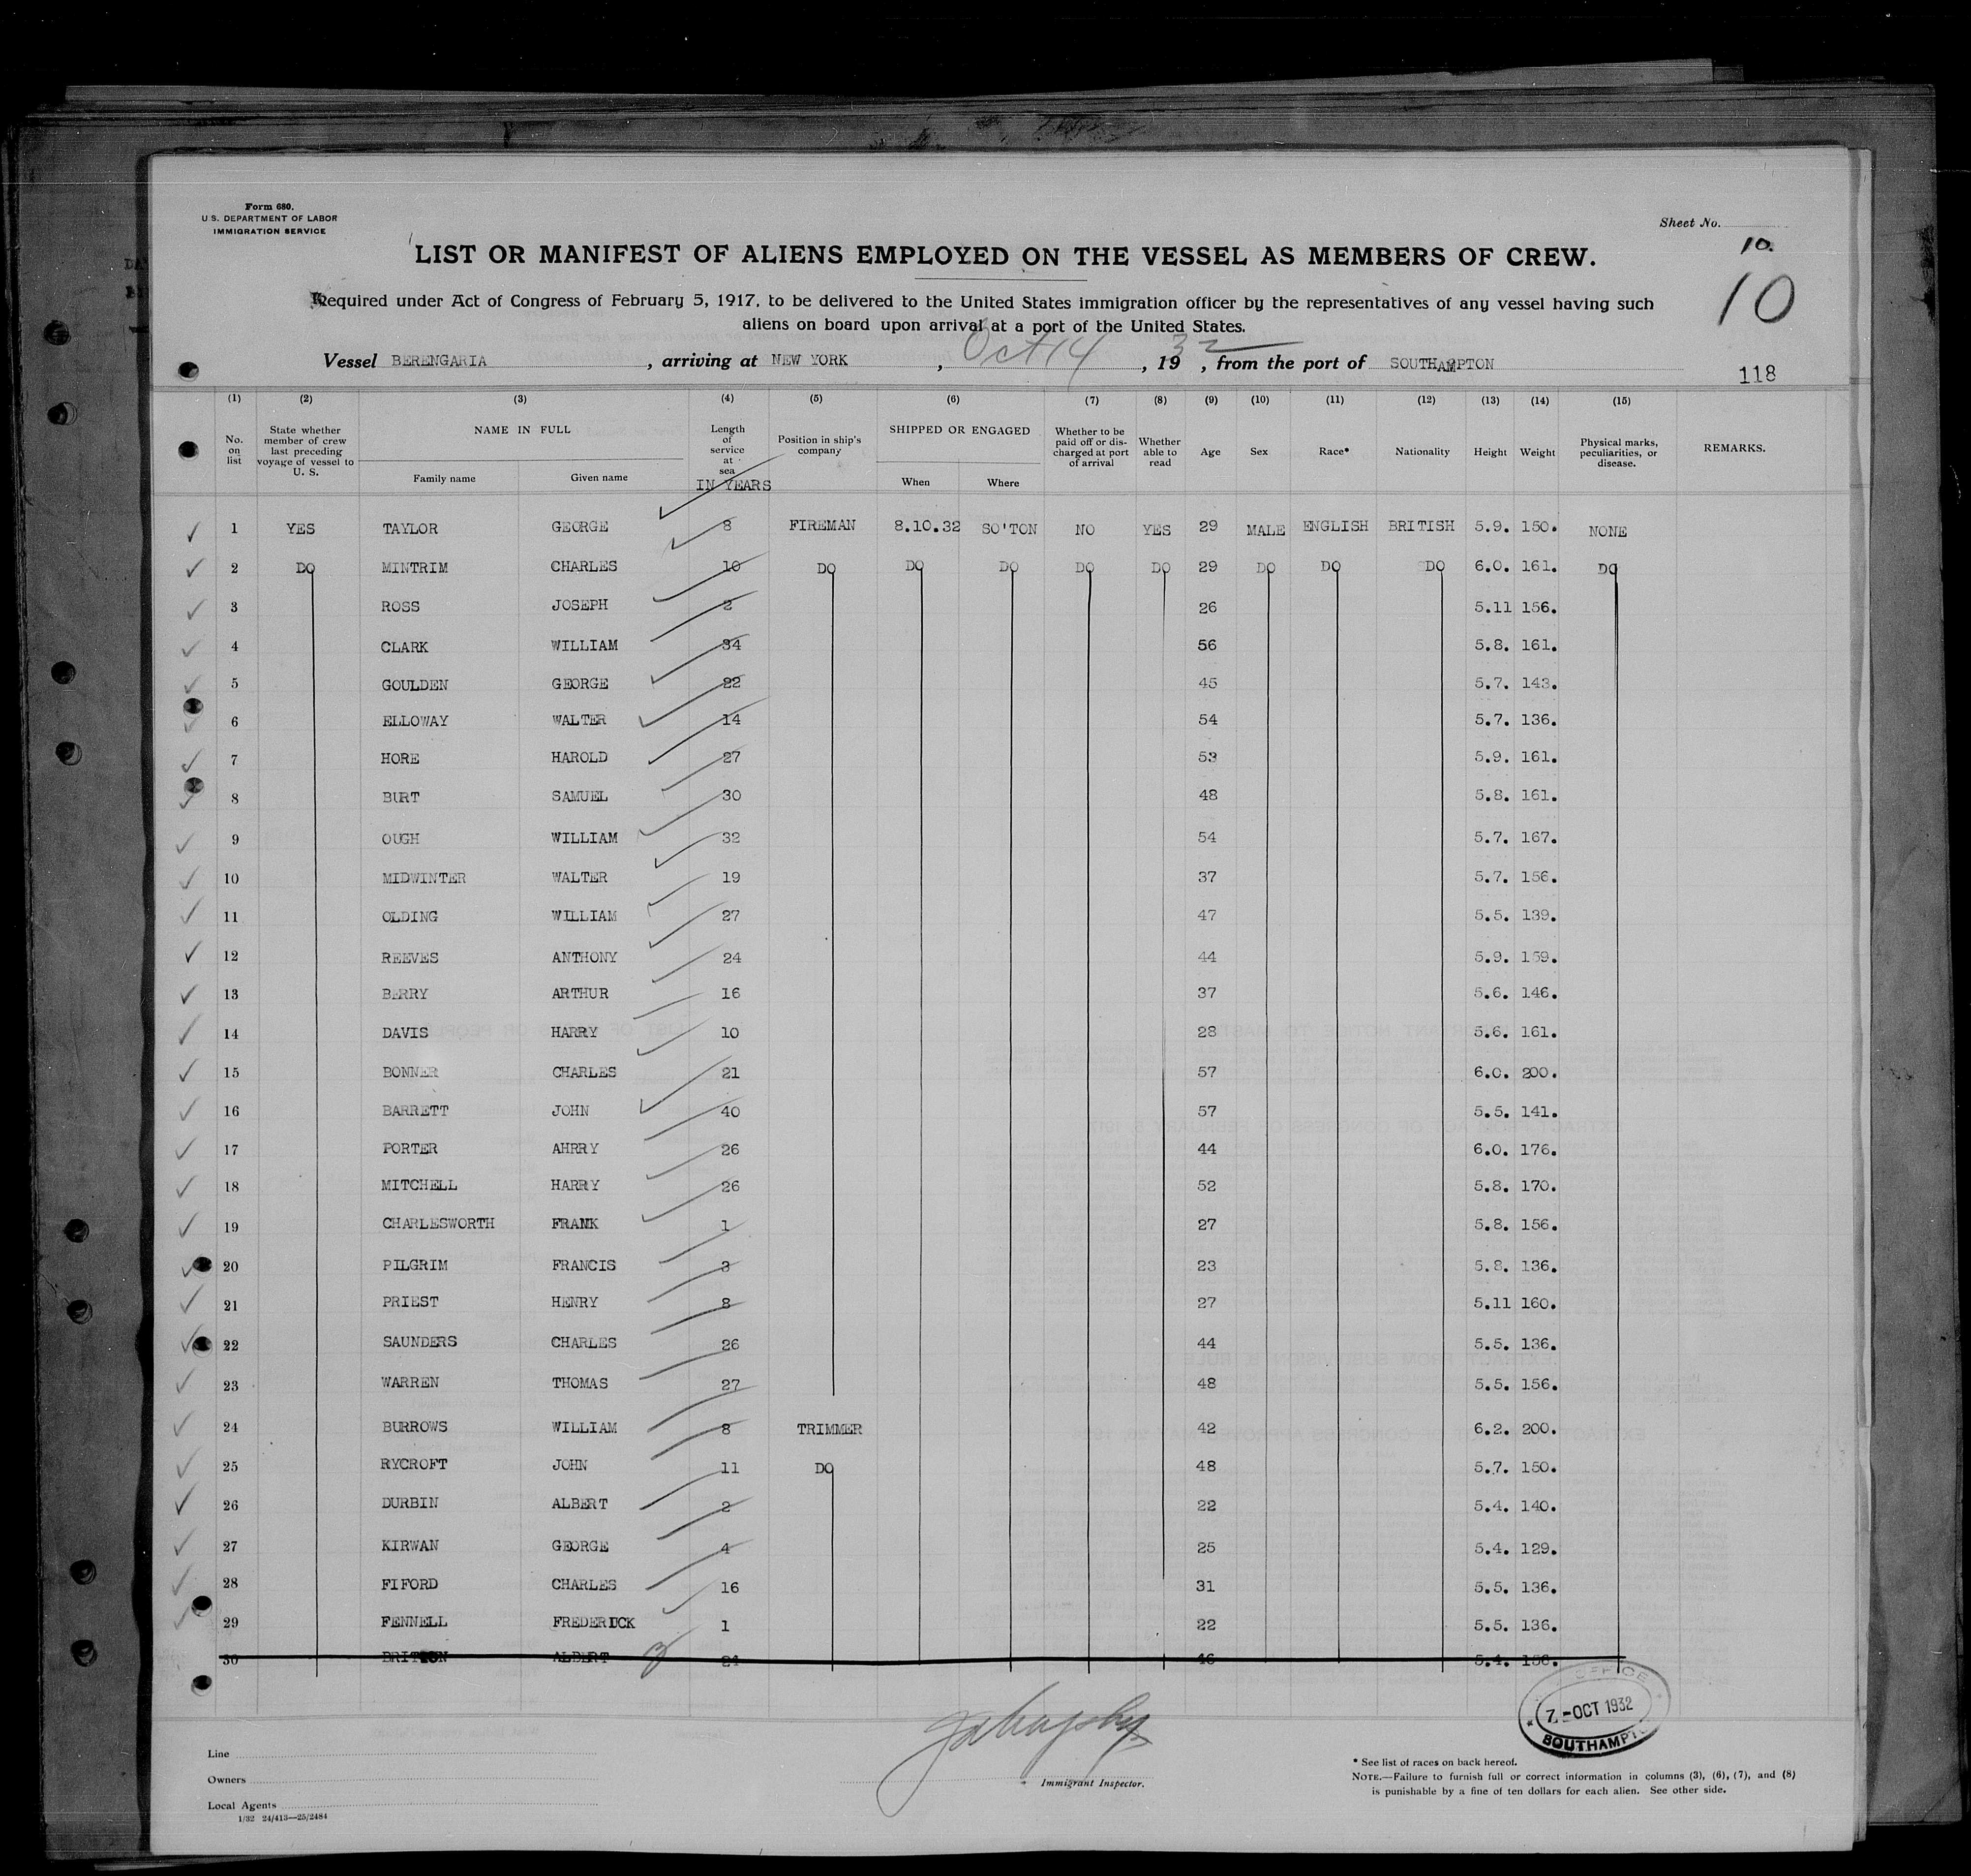 Form 680.
U S. DEPARTMENT OF LABOR
IMMIGRATION SERVICE
Sheet No.
10.
LIST OR MANIFEST OF ALIENS EMPLOYED ON THE VESSEL AS MEMBERS OF CREW.
10
Required under Act of Congress of February 5, 1917, to be delivered to the United States immigration officer by the representatives of any vessel having such
aliens on board upon arrival at a port of the United States.
Vessel BERENGARIA, arriving at NEW YORK, Oct 14, 1932, from the port of SOUTHAMPTON
118
(1) (2) (3) (4) (5) (6) (7) (8) (9) (10) (11) (12) (13) (14) (15)
No. on list State whether member of crew last preceding voyage of vessel to U. S. NAME IN FULL Family name Given name Length of service at sea IN YEARS Position in ship's company SHIPPED OR ENGAGED When Where Whether to be paid off or discharged at port of arrival Whether able to read Age Sex Race* Nationality Height Weight Physical marks, peculiarities, or disease. REMARKS.
1 YES TAYLOR GEORGE 8 FIREMAN 8.10.32 SO'TON NO YES 29 MALE ENGLISH BRITISH 5.9. 150. NONE
2 DO MINTRIM CHARLES 10 DO DO DO DO DO 29 DO DO DO 6.0. 161. DO
3 ROSS JOSEPH 2 26 5.11 156.
4 CLARK WILLIAM 34 56 5.8. 161.
5 GOULDEN GEORGE 22 45 5.7. 143.
6 ELLOWAY WALTER 14 54 5.7. 136.
7 HORE HAROLD 27 53 5.9. 161.
8 BURT SAMUEL 30 48 5.8. 161.
9 OUGH WILLIAM 32 54 5.7. 167.
10 MIDWINTER WALTER 19 37 5.7. 156.
11 OLDING WILLIAM 27 47 5.5. 139.
12 REEVES ANTHONY 24 44 5.9. 159.
13 BERRY ARTHUR 16 37 5.6. 146.
14 DAVIS HARRY 10 28 5.6. 161.
15 BONNER CHARLES 21 57 6.0. 200.
16 BARRETT JOHN 40 57 5.5. 141.
17 PORTER AHRRY 26 44 6.0. 176.
18 MITCHELL HARRY 26 52 5.8. 170.
19 CHARLESWORTH FRANK 1 27 5.8. 156.
20 PILGRIM FRANCIS 3 23 5.8. 136.
21 PRIEST HENRY 8 27 5.11 160.
22 SAUNDERS CHARLES 26 44 5.5. 136.
23 WARREN THOMAS 27 48 5.5. 156.
24 BURROWS WILLIAM 8 TRIMMER 42 6.2. 200.
25 RYCROFT JOHN 11 DO 48 5.7. 150.
26 DURBIN ALBERT 2 22 5.4. 140.
27 KIRWAN GEORGE 4 25 5.4. 129.
28 FIFORD CHARLES 16 31 5.5. 136.
29 FENNELL FREDERUCK 1 22 5.5. 136.
30 BRITTON ALBERT 24 46 5.4. 156.
OFFICE
7-OCT 1932
SOUTHAMPTON
Line
Owners
Local Agents
1/32 24/413—25/2484
Immigrant Inspector.
* See list of races on back hereof.
NOTE.—Failure to furnish full or correct information in columns (3), (6), (7), and (8)
is punishable by a fine of ten dollars for each alien. See other side.